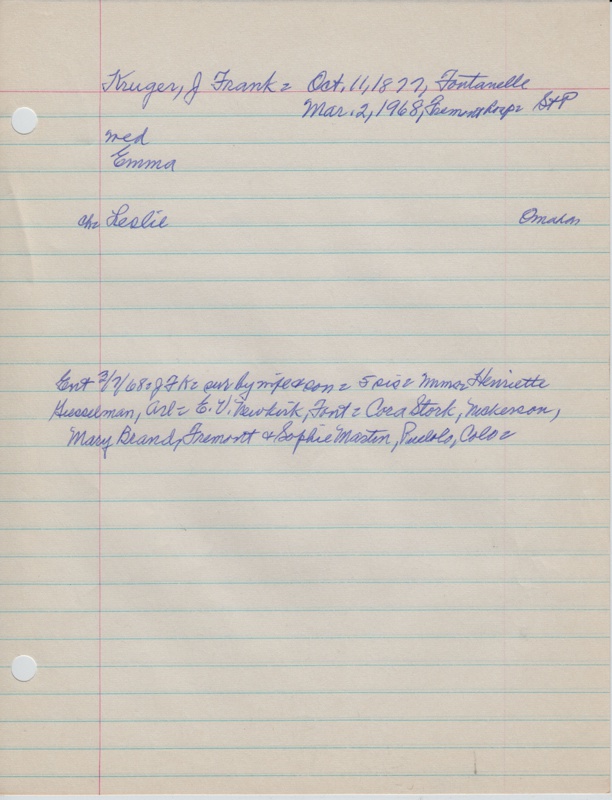 Kruger, J Frank = Oct. 11, 1877, Fontanelle
Mar. 2, 1968, Fremont hosp = StP
med
Emma
ch= Leslie Omaha
Ent 3/7/68 = JFK = sur by wife & son = 5 sis = Mmes Henriette
Giesselman, Arl = E. V. Newkirk, Font = Cora Stork, Nickerson,
Mary Brand, Fremont & Sophie Martin, Pueblo, Colo =